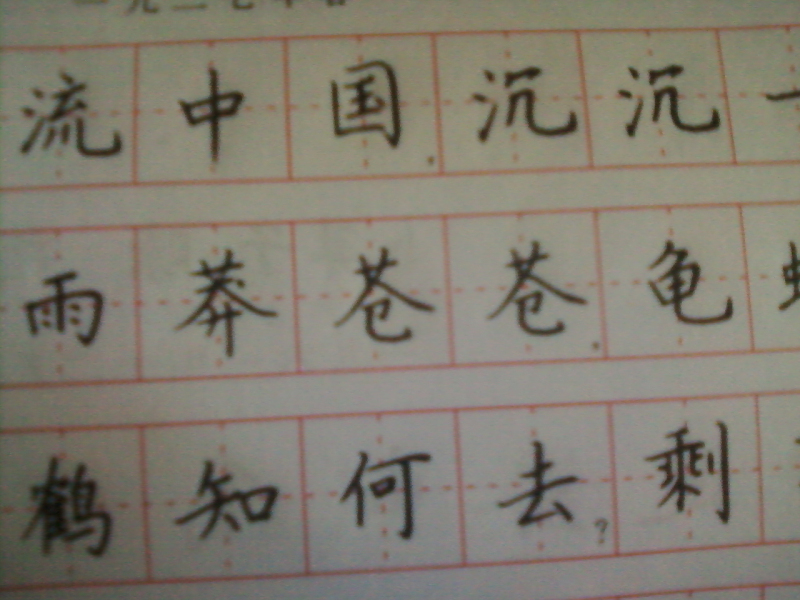 流中国.沉沉一
雨莽苍苍.龟
鹤知何去?剩